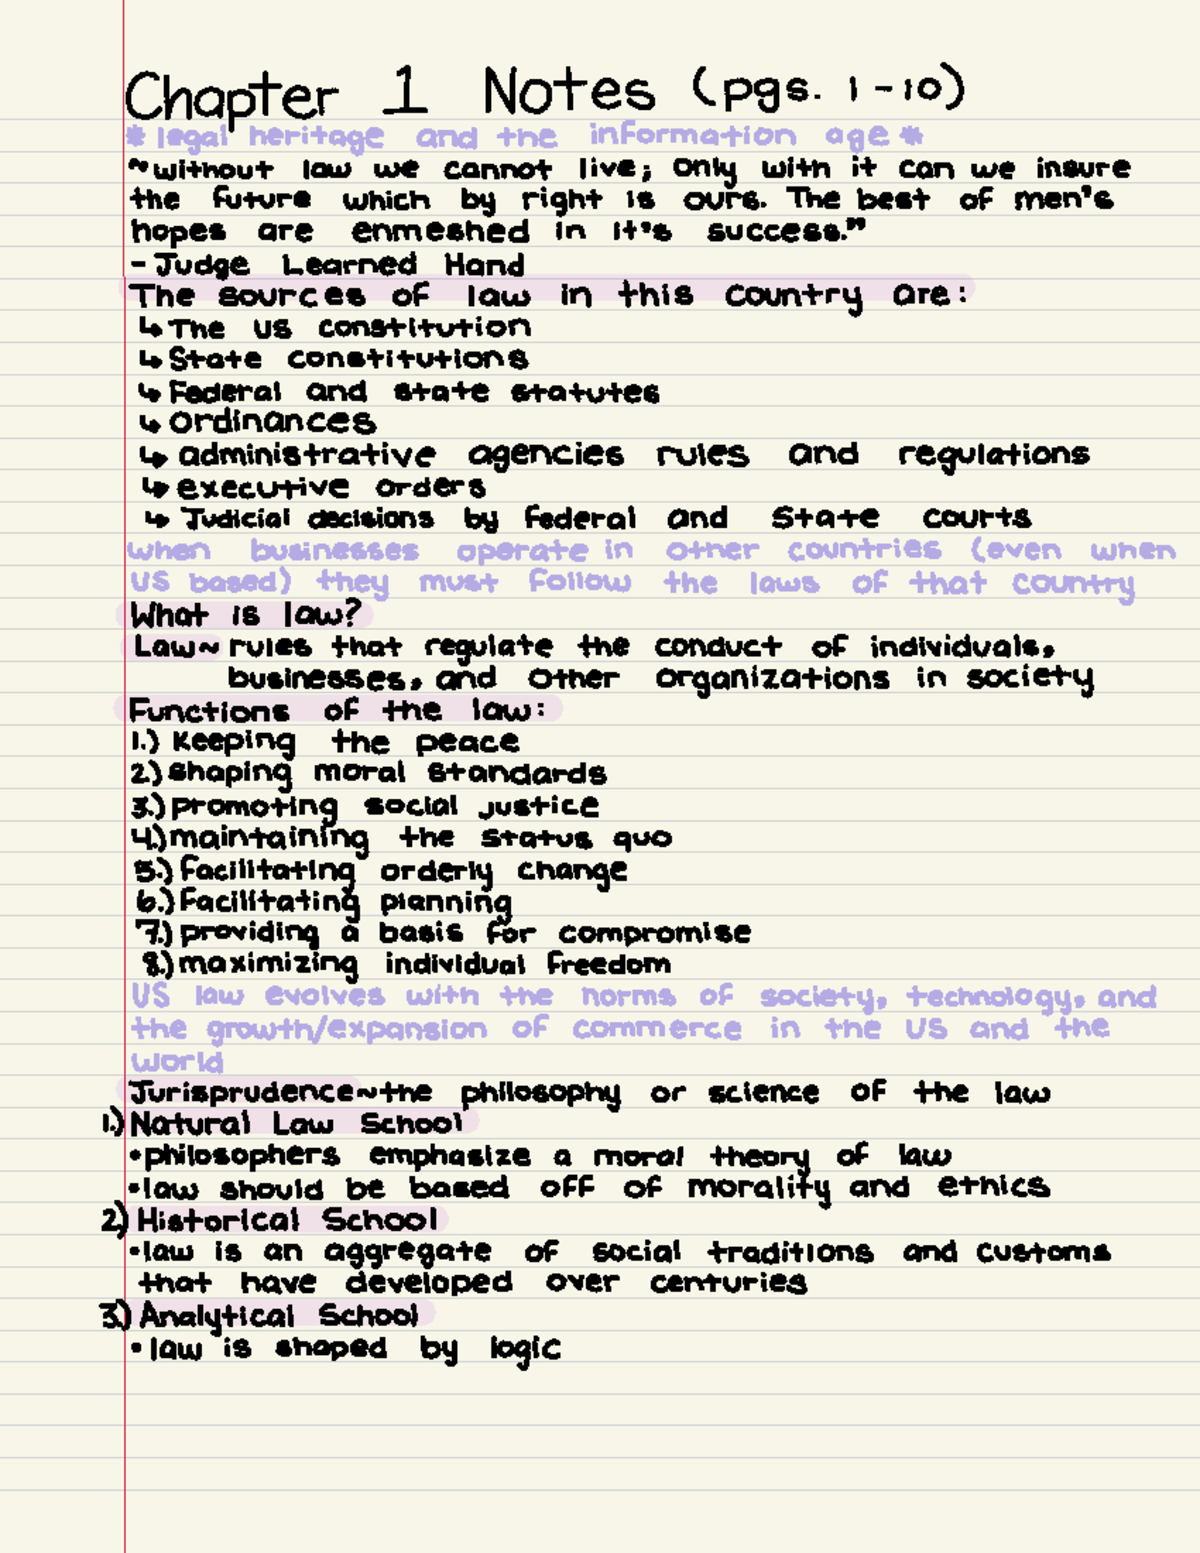 Chapter 1 Notes (pgs. 1-10)
* legal heritage and the information age *
"without law we cannot live; only with it can we insure
the future which by right is ours. The best of men's
hopes are enmeshed in it's success."
- Judge Learned Hand
The sources of law in this country are:
↳ The US constitution
↳ State constitutions
↳ Federal and state statutes
↳ ordinances
↳ administrative agencies rules and regulations
↳ executive orders
↳ Judicial decisions by federal and state courts
when businesses operate in other countries (even when
US based) they must follow the laws of that country
What is law?
Law~ rules that regulate the conduct of individuals,
businesses, and other organizations in society
Functions of the law:
1.) Keeping the peace
2.) shaping moral standards
3.) promoting social justice
4.) maintaining the status quo
5.) facilitating orderly change
6.) Facilitating planning
7.) providing a basis for compromise
8.) maximizing individual freedom
US law evolves with the norms of society, technology, and
the growth/expansion of commerce in the US and the
world
Jurisprudence~the philosophy or science of the law
1.) Natural Law School
•philosophers emphasize a moral theory of law
•law should be based off of morality and ethics
2) Historical School
•law is an aggregate of social traditions and customs
that have developed over centuries
3) Analytical School
•law is shaped by logic